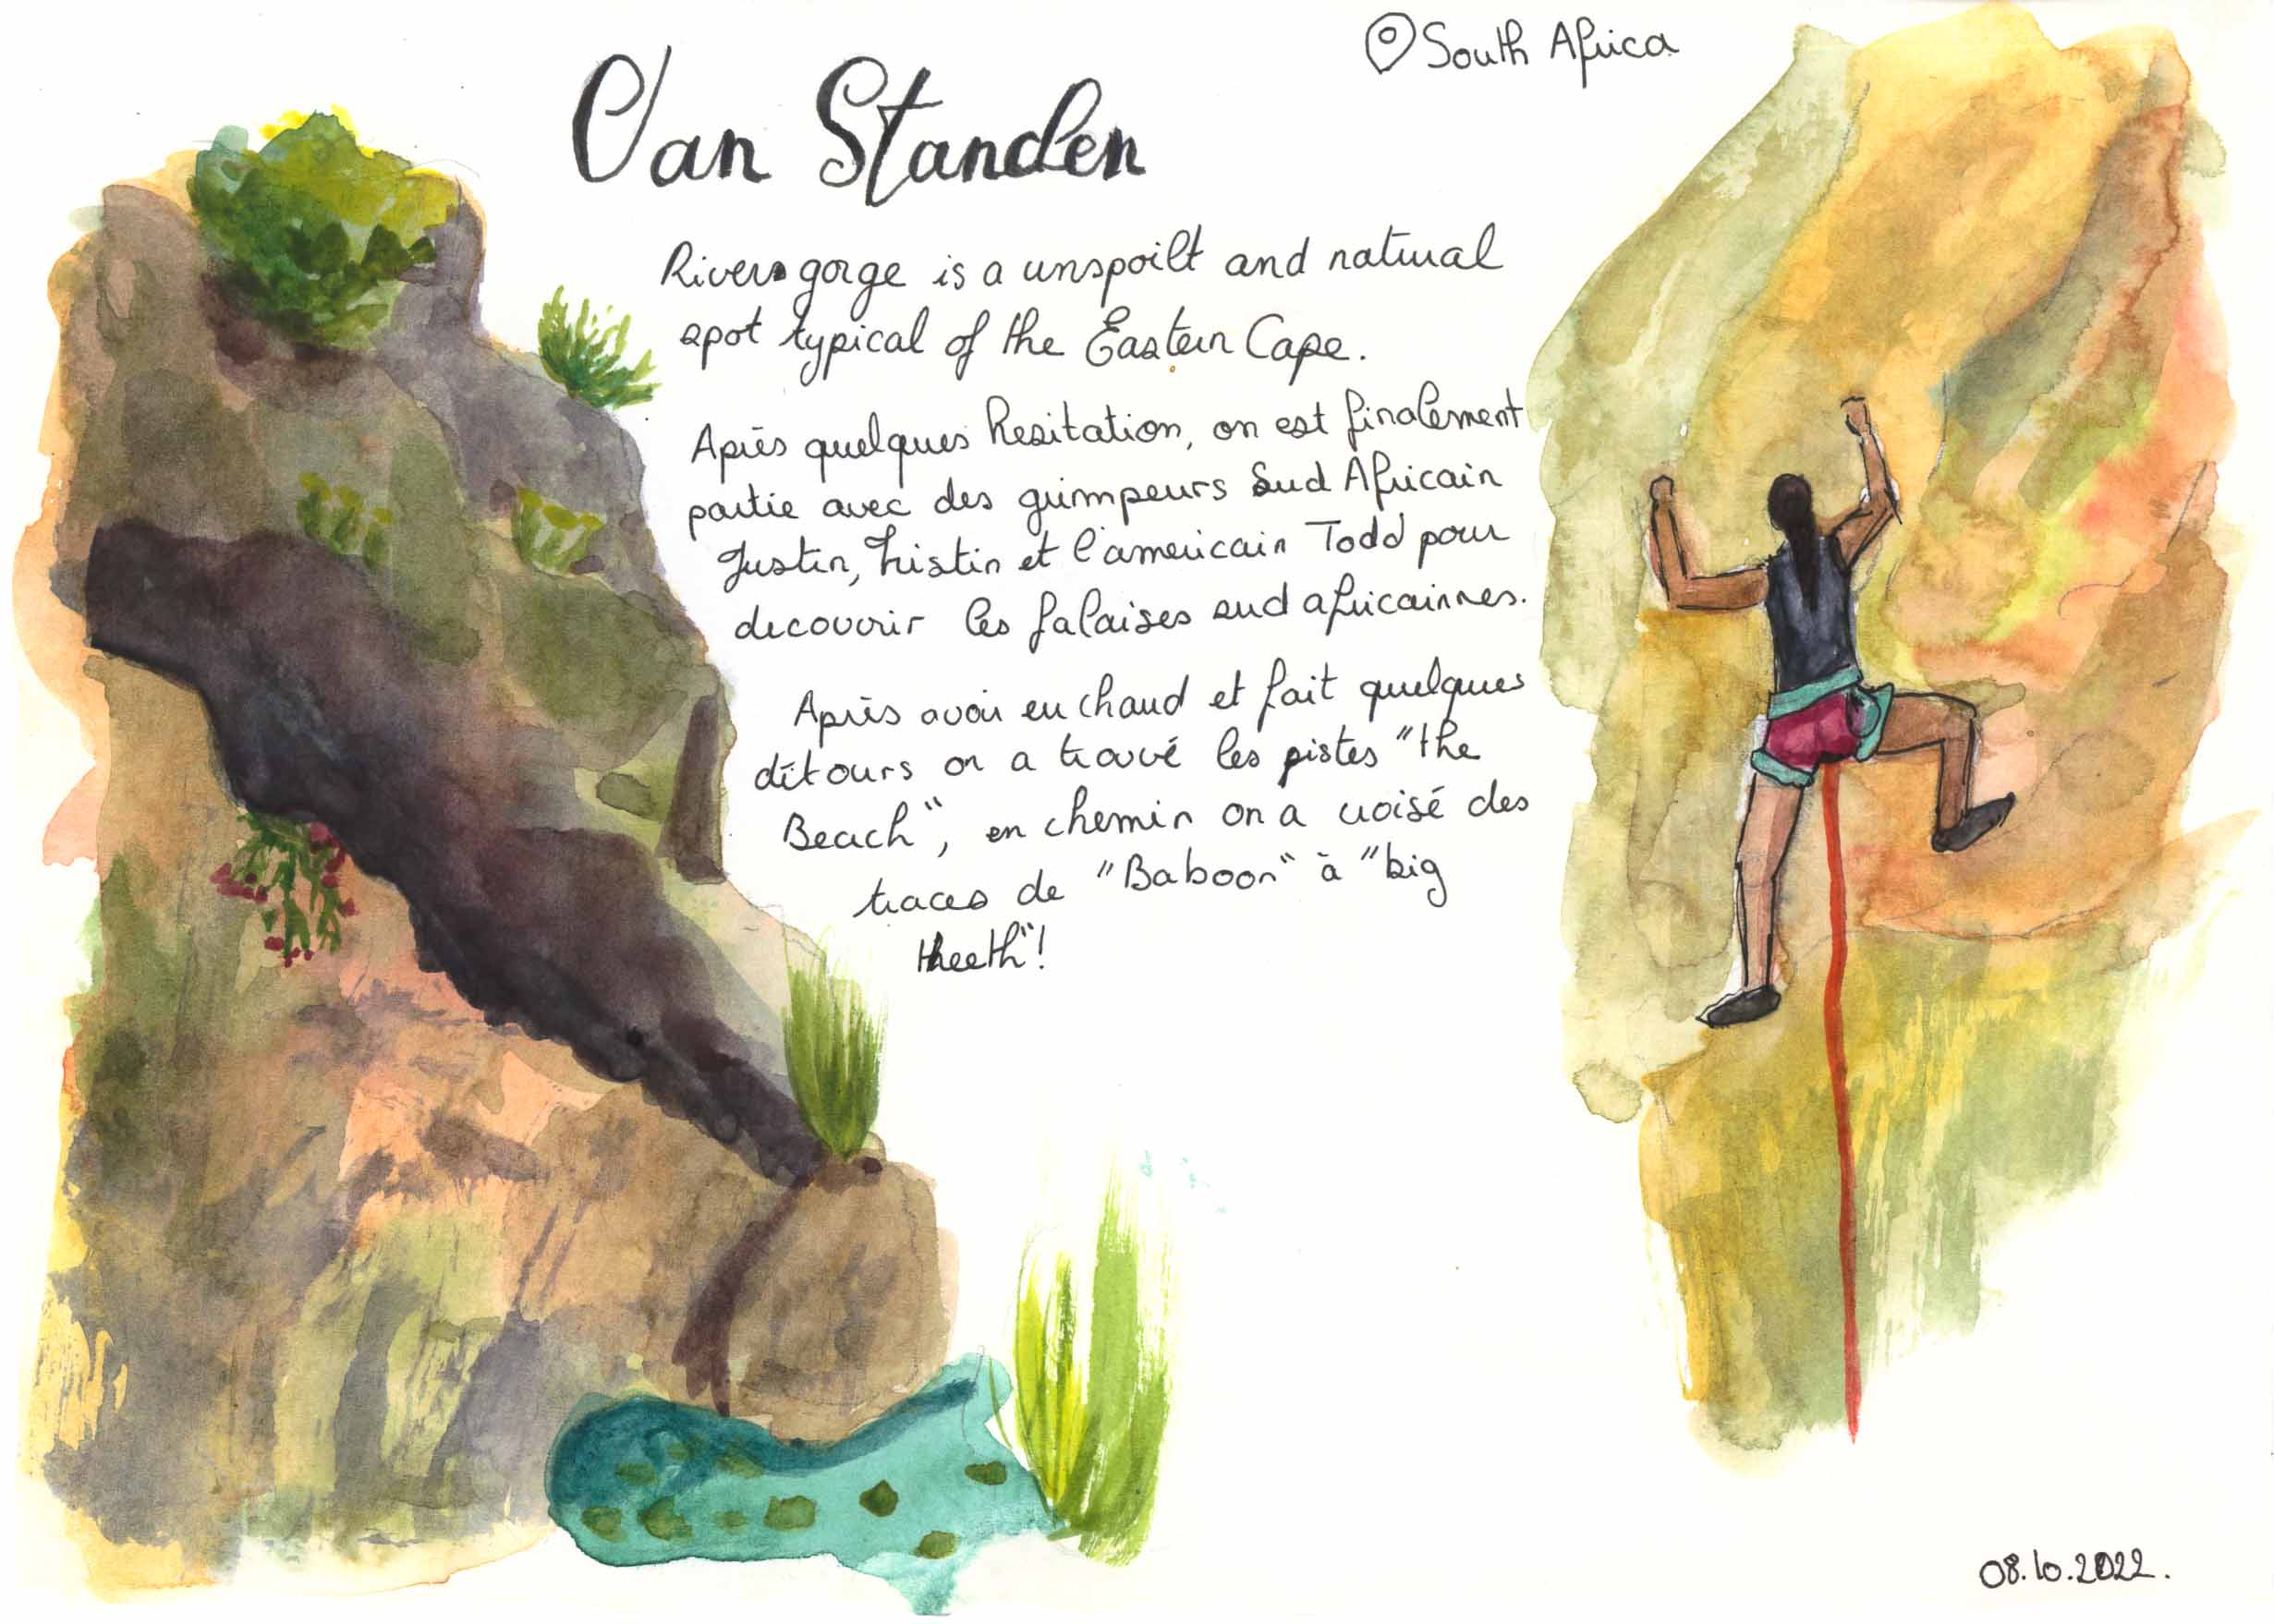 South Africa
Van Standen
Rivers gorge is a unspoilt and natural
spot typical of the Eastern Cape.
Après quelques hesitation, on est finalement
partie avec des grimpeurs Sud Africain
Justin, Tristin et l'americain Todd pour
decouvrir les falaises sud africainnes.
Après avoir eu chaud et fait quelques
détours on a trouvé les pistes "the
Beach", en chemin on a croisé des
traces de "Baboon" à "big
theeth"!
08.10.2022.